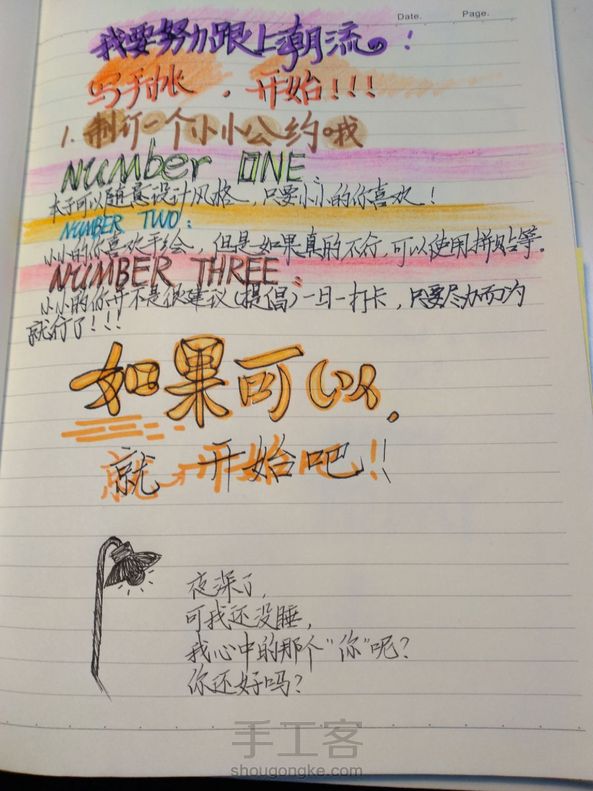 Date. Page.
我要努力跟上潮流。!
写手帐.开始!!!
1.制订一个小小公约哦
NUMber ONE
本子可以随意设计风格,只要小小的你喜欢!
NUMBER TWO:
小小的你喜欢手绘,但是如果真的不行,可以使用拼贴等.
NUMBER THREE:
小小的你并不是很建议(提倡)一日一打卡,只要尽力而为
就行了!!!
如果可以.
就开始吧!!
夜深了,
可我还没睡,
我心中的那个“你”呢?
你还好吗?
手工客
shougongke.com